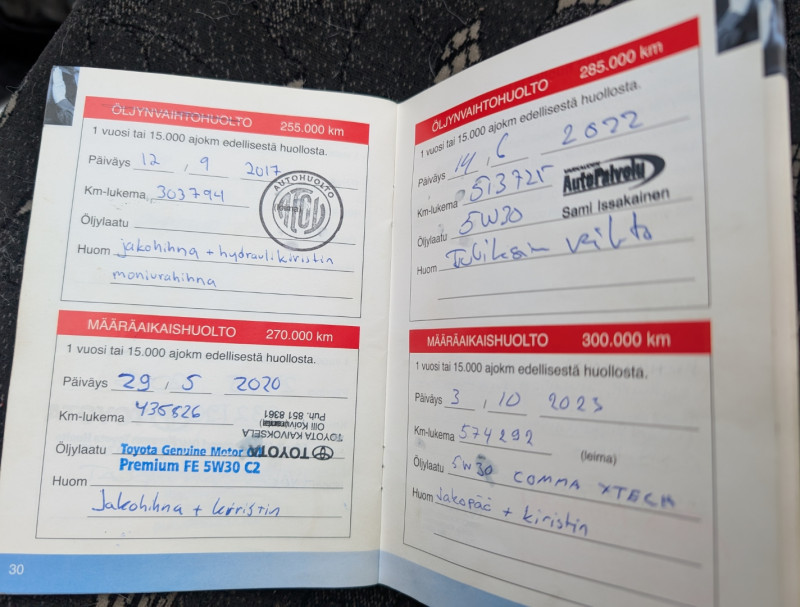 ÖLJYNVAIHTOHUOLTO 255.000 km
1 vuosi tai 15.000 ajokm edellisestä huollosta.
Päiväys 12 , 9 2017
Km-lukema 303794
AUTOHUOLTO
ATCU
Öljylaatu
Huom jakohihna + hydraulikiristin
moniurahihna
MÄÄRÄAIKAISHUOLTO 270.000 km
1 vuosi tai 15.000 ajokm edellisestä huollosta.
Päiväys 29 , 5 2020
Km-lukema 435826
TOYOTA
TOYOTA KAIVOKSELA
Olli
Puh. 851 8361
Öljylaatu Toyota Genuine Motor Oil
Premium FE 5W30 C2
Huom
Jakohihna + kiristin
30
ÖLJYNVAIHTOHUOLTO 285.000 km
1 vuosi tai 15.000 ajokm edellisestä huollosta.
Päiväys 14 , 6 2022
Km-lukema 513725
AutoPalvelu
Sami Issakainen
Öljylaatu 5W30
Huom vaihto
MÄÄRÄAIKAISHUOLTO 300.000 km
1 vuosi tai 15.000 ajokm edellisestä huollosta.
Päiväys 3 , 10 2023
Km-lukema 574292
(leima)
Öljylaatu 5W30 COMMA XTECH
Huom Jakopää + kiristin